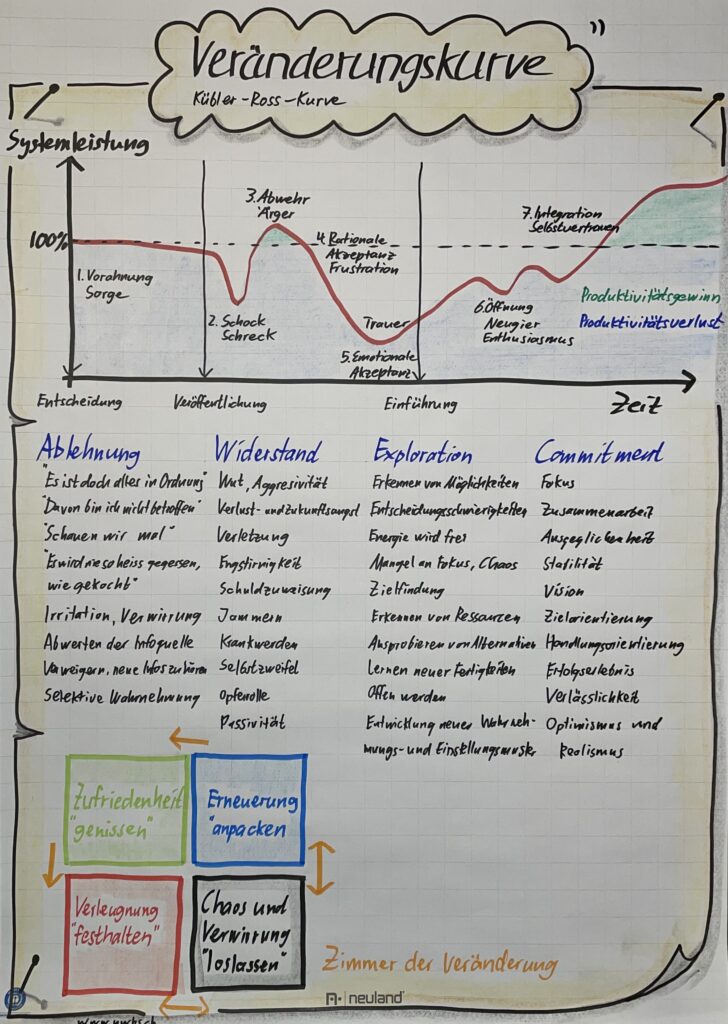 Veränderungskurve
Kübler-Ross-Kurve
Systemleistung
100%
1. Vorahnung
Sorge
2. Schock
Schreck
3. Abwehr
Ärger
4. Rationale
Akzeptanz
Frustration
Trauer
5. Emotionale
Akzeptanz
6. Öffnung
Neugier
Enthusiasmus
7. Integration
Selbstvertrauen
Produktivitätsgewinn
Produktivitätsverlust
Entscheidung
Veröffentlichung
Einführung
Zeit
Ablehnung
"Es ist doch alles in Ordnung"
"Davon bin ich nicht betroffen"
"Schauen wir mal"
"Es wird nie so heiss gegessen,
wie gekocht"
Irritation, Verwirrung
Abwerten der Infoquelle
Verweigern, neue Infos zu hören
Selektive Wahrnehmung
Widerstand
Wut, Aggresivität
Verlust- und zukunftsangst
Verletzung
Engstirnigkeit
Schuldzuweisung
Jammern
Krankwerden
Selbstzweifel
Opferrolle
Passivität
Exploration
Erkennen von Möglichkeiten
Entscheidungsschwierigkeiten
Energie wird frei
Mangel an Fokus, Chaos
Zielfindung
Erkennen von Ressourcen
Ausprobieren von Alternativen
Lernen neuer Fertigkeiten
Offen werden
Entwicklung neuer Wahrneh-
mungs- und Einstellungsmuster
Commitment
Fokus
Zusammenarbeit
Ausgeglichenheit
Stabilität
Vision
Zielorientierung
Handlungsorientierung
Erfolgserlebnis
Verlässlichkeit
Optimismus und
Realismus
Zufriedenheit
"genissen"
Erneuerung
"anpacken
Verleugnung
"festhalten"
Chaos und
Verwirrung
"loslassen"
Zimmer der Veränderung
neuland